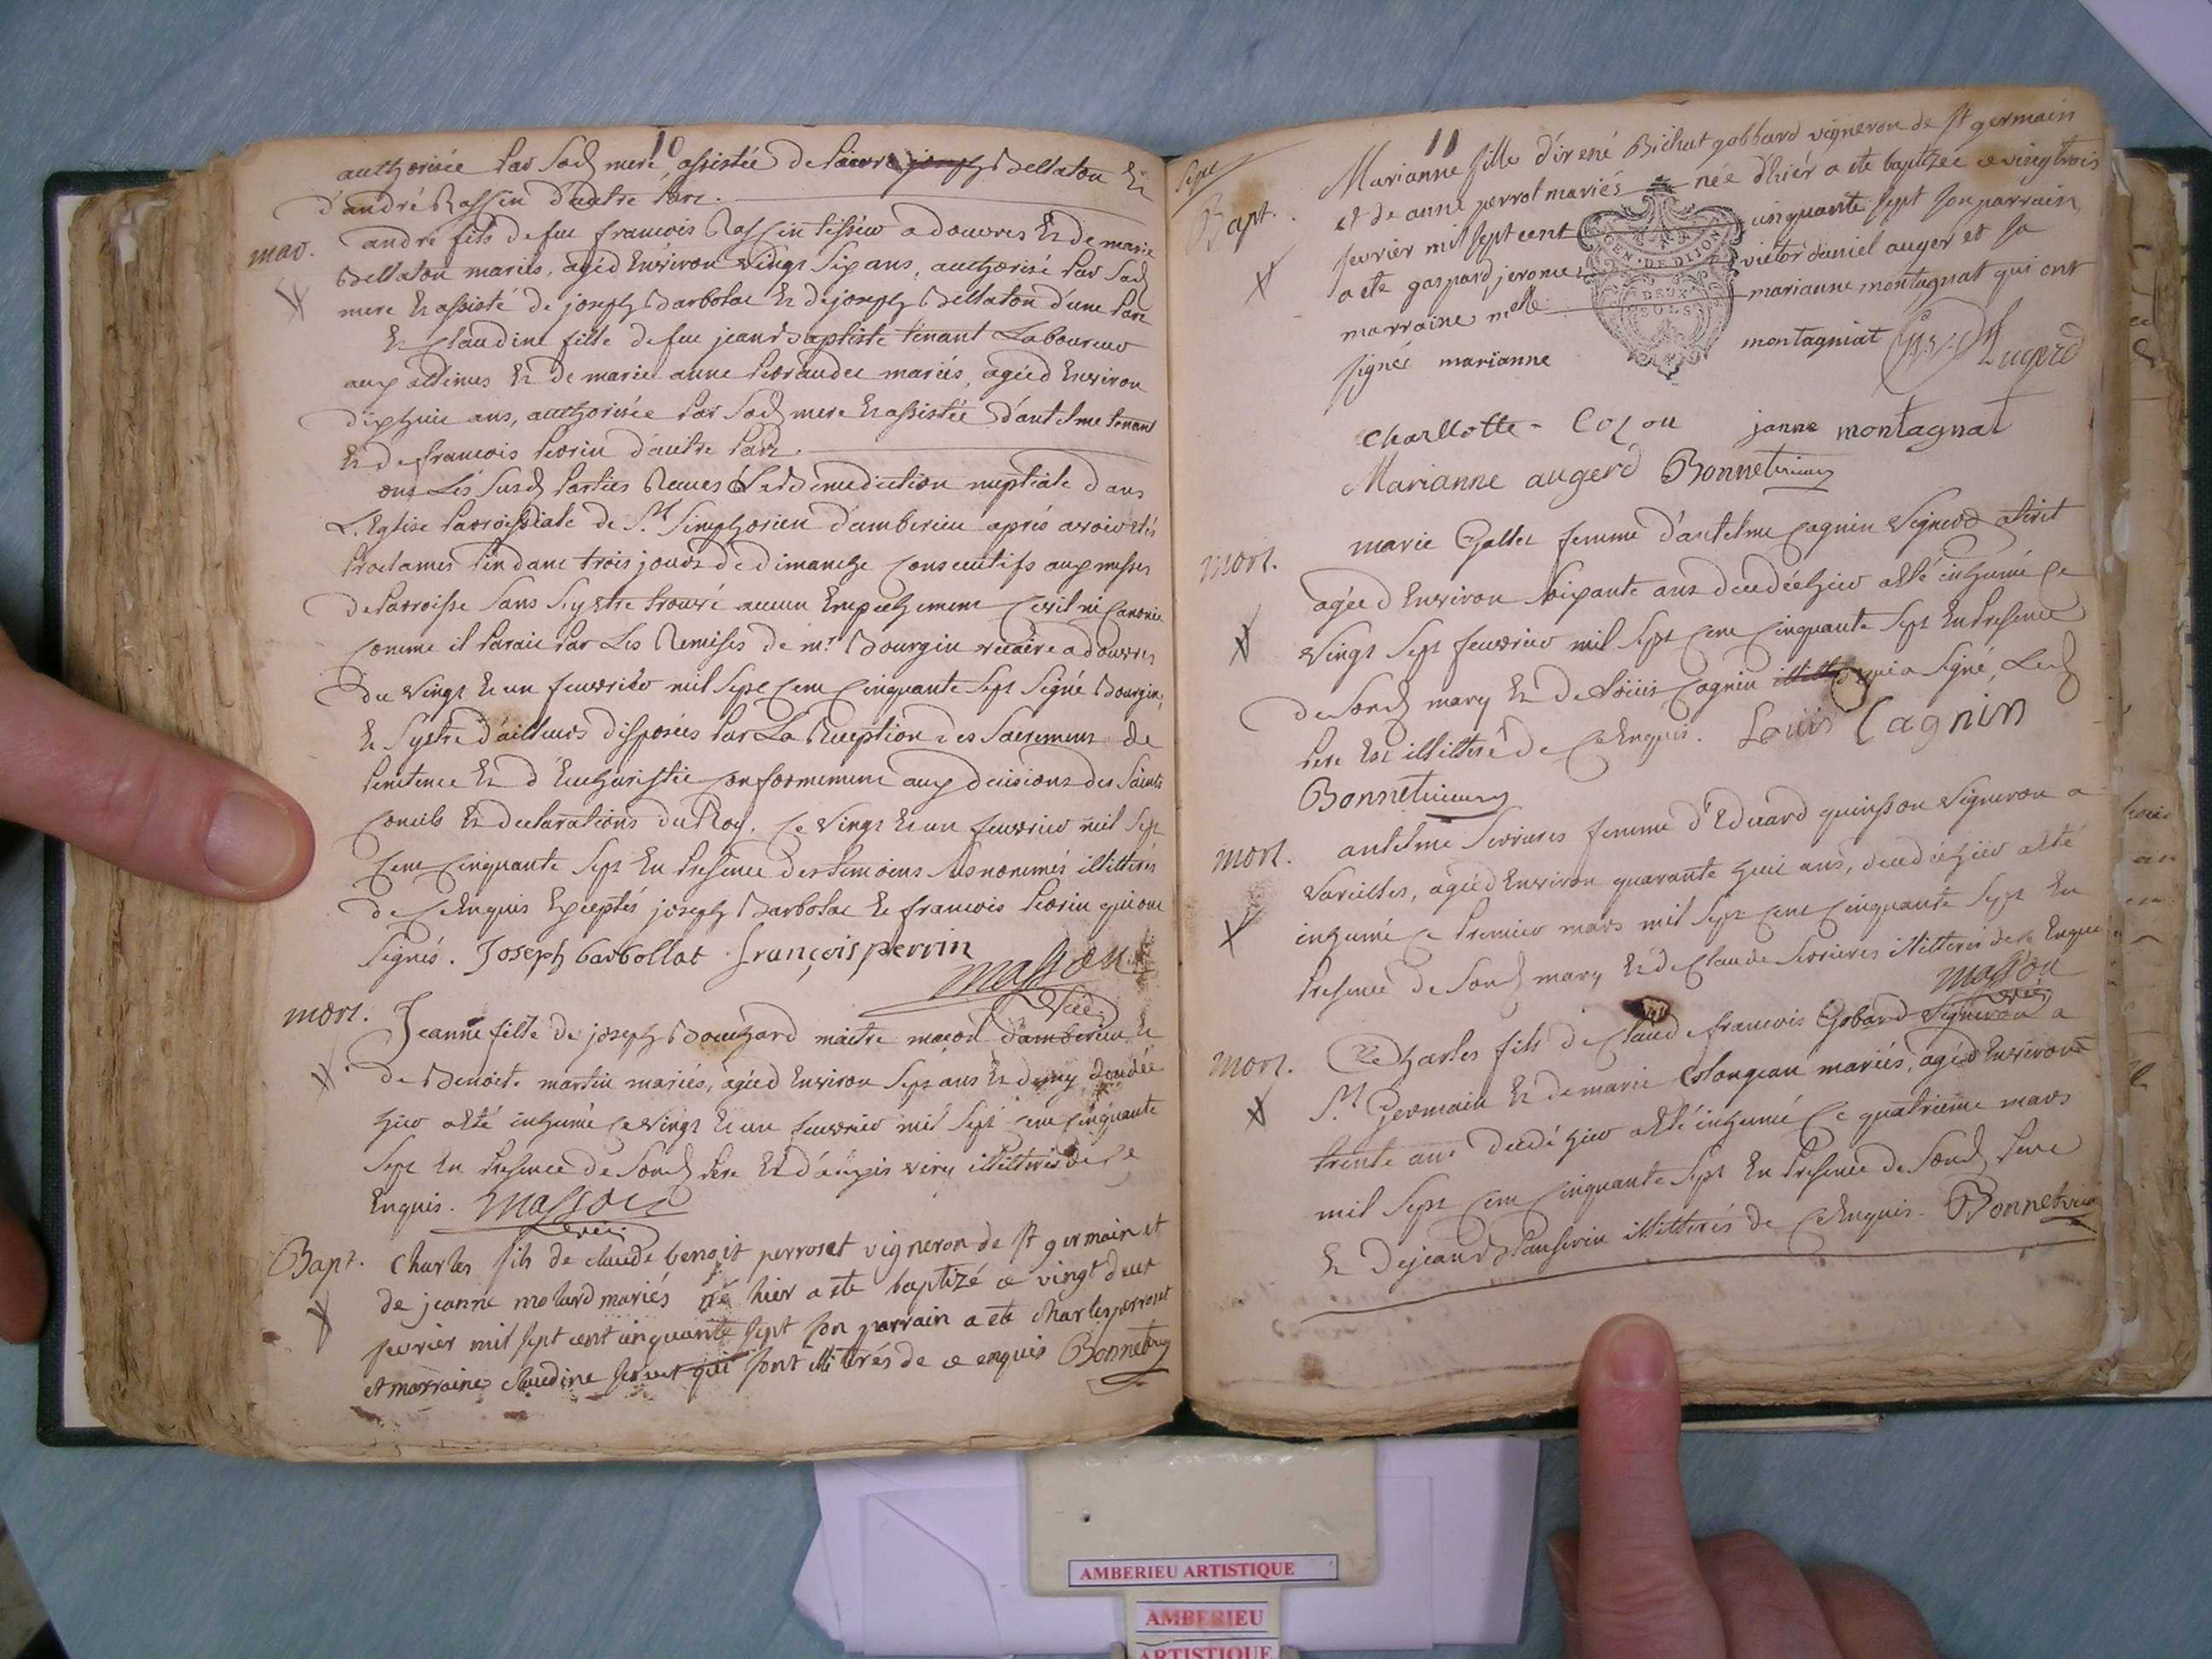 10
authorisée par sad mere, assistée de pierre joseph Bellaton Et
d'andré Rassin d'autre part.
mar. andré fils de feu francois Rassin tissieu a douvres Et de marie
Bellaton mariés, agéd Environ vingt six ans, authorisé par sad
mere Et assisté de joseph Barbolat Et de joseph Bellaton d'une part
Et claudine fille de feu jean Baptiste tenant Laboureur
aux allimes Et de marie anne mariés, agéed Environ
dixhuit ans, authorisée par sad mere Et assistée d'antelme tenant
Et de francois perrin d'autre part.
ont Les susd parties Reçues La Benediction nuptiale dans
L'Eglise parroissiale de St Simphorien d'amberieu aprés avoir etés
proclamés pendant trois jours de dimanche consecutifs aux messes
de parroisse sans s'y etre trouvé aucun Empechement civil ni canonic
comme il parait par Les Remises de mr Bourgin vicaire a douvres
du vingt Et un feuvrier mil sept cent cinquante sept signé Bourgin,
Et s'y etre d'ailleurs disposées par La Reception des sacremens de
penitence Et d'Eucharistie conformement aux decisions des saints
concils Et declarations du Roy. ce vingt Et un feuvrier mil sept
cent cinquante sept En presence des temoins susnommés illitterés
de ce Enquis Exceptés joseph Barbolat Et francois perrin qui ont
signés. Joseph barbollat françois perrin
Masson
vic.
mort. Jeanne fille de joseph Bouchard maitre maçon d'amberieu Et
de Benoite martin mariés, agéed Environ sept ans Et demy decedée
hier a Eté inhumé ce vingt Et un feuvrier mil sept cent cinquante
sept En presence de sond pere Et d'alexis viry illitterés de ce
Enquis. Masson
vic.
Bapt. Charles fils de claude benoit perroset vigneron de st germain et
de jeanne molard mariés né hier a ete baptizé ce vingt deux
fevrier mil sept cent cinquante sept son parrain a ete charles perroset
et marraine claudine qui sont illiterés de ce enquis Bonnet vic
11
Bapt. Marianne fille d'irené Bichat gobbard vigneron de st germain
et de anne perrot mariés née d'hiér a ete baptizee ce vingt trois
fevrier mil sept cent cinquante sept son parrain
a ete gaspard jerome victor daniel auger et sa
marraine melle marianne montagnat qui ont
signés marianne montagniat Augerd
GEN. DE DIJON
DEUX
SOLS
charllotte Cozon janne montagnat
Marianne augerd Bonnet vicaire
mort. marie Gallet femme d'antelme cagnin vignerod atiret
agéed Environ soixante ans decedée hier a Eté inhumé ce
vingt sept feuvrier mil sept cent cinquante sept En presence
de sond mary Et de Loüis cagnin qui a signé, Led
pere Est illitteré de ce Enquis. Loüis Cagnin
Bonnet vicaire
mort. antelme serrieres femme d'Edouard quinsson vigneron a
vareilles, agéed Environ quarante huit ans, decedée hier a Eté
inhumé ce premier mars mil sept cent cinquante sept En
presence de sond mary Et de claude serrieres illitterés de ce Enquis
Masson
vic.
mort. charles fils de claude francois Gobard vigneron a
St Germain Et de marie Colongeau mariés, agéd Environ
trente ans decedé hier a Eté inhumé ce quatrieme mars
mil sept cent cinquante sept En presence de sond pere
Et de jean illitterés de ce Enquis. Bonnet vic
AMBERIEU ARTISTIQUE
AMBERIEU
ARTISTIQUE